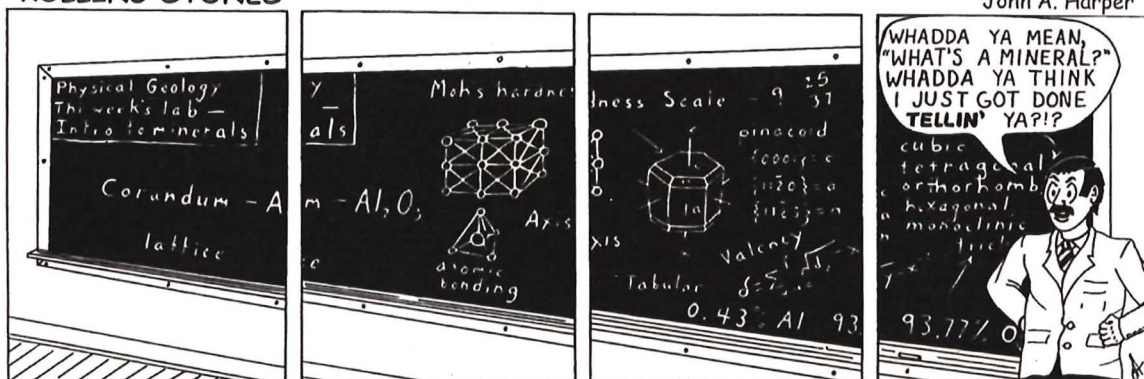 John A. Harper
Physical Geology
This week's lab —
Intro to minerals
Corundum - A
lattice
y
als
Mohs hardne
m - Al₂O₃
Axis
atomic
bonding
dness Scale - 9
25
37
pinacoid
{0001} = c
{11-20} = a
xis
Valency
Tabular
0.43% Al 93.
WHADDA YA MEAN,
"WHAT'S A MINERAL?"
WHADDA YA THINK
I JUST GOT DONE
TELLIN' YA?!?
cubic
tetragonal
orthorhomb
hexagonal
monoclinic
tricl
93.77% O